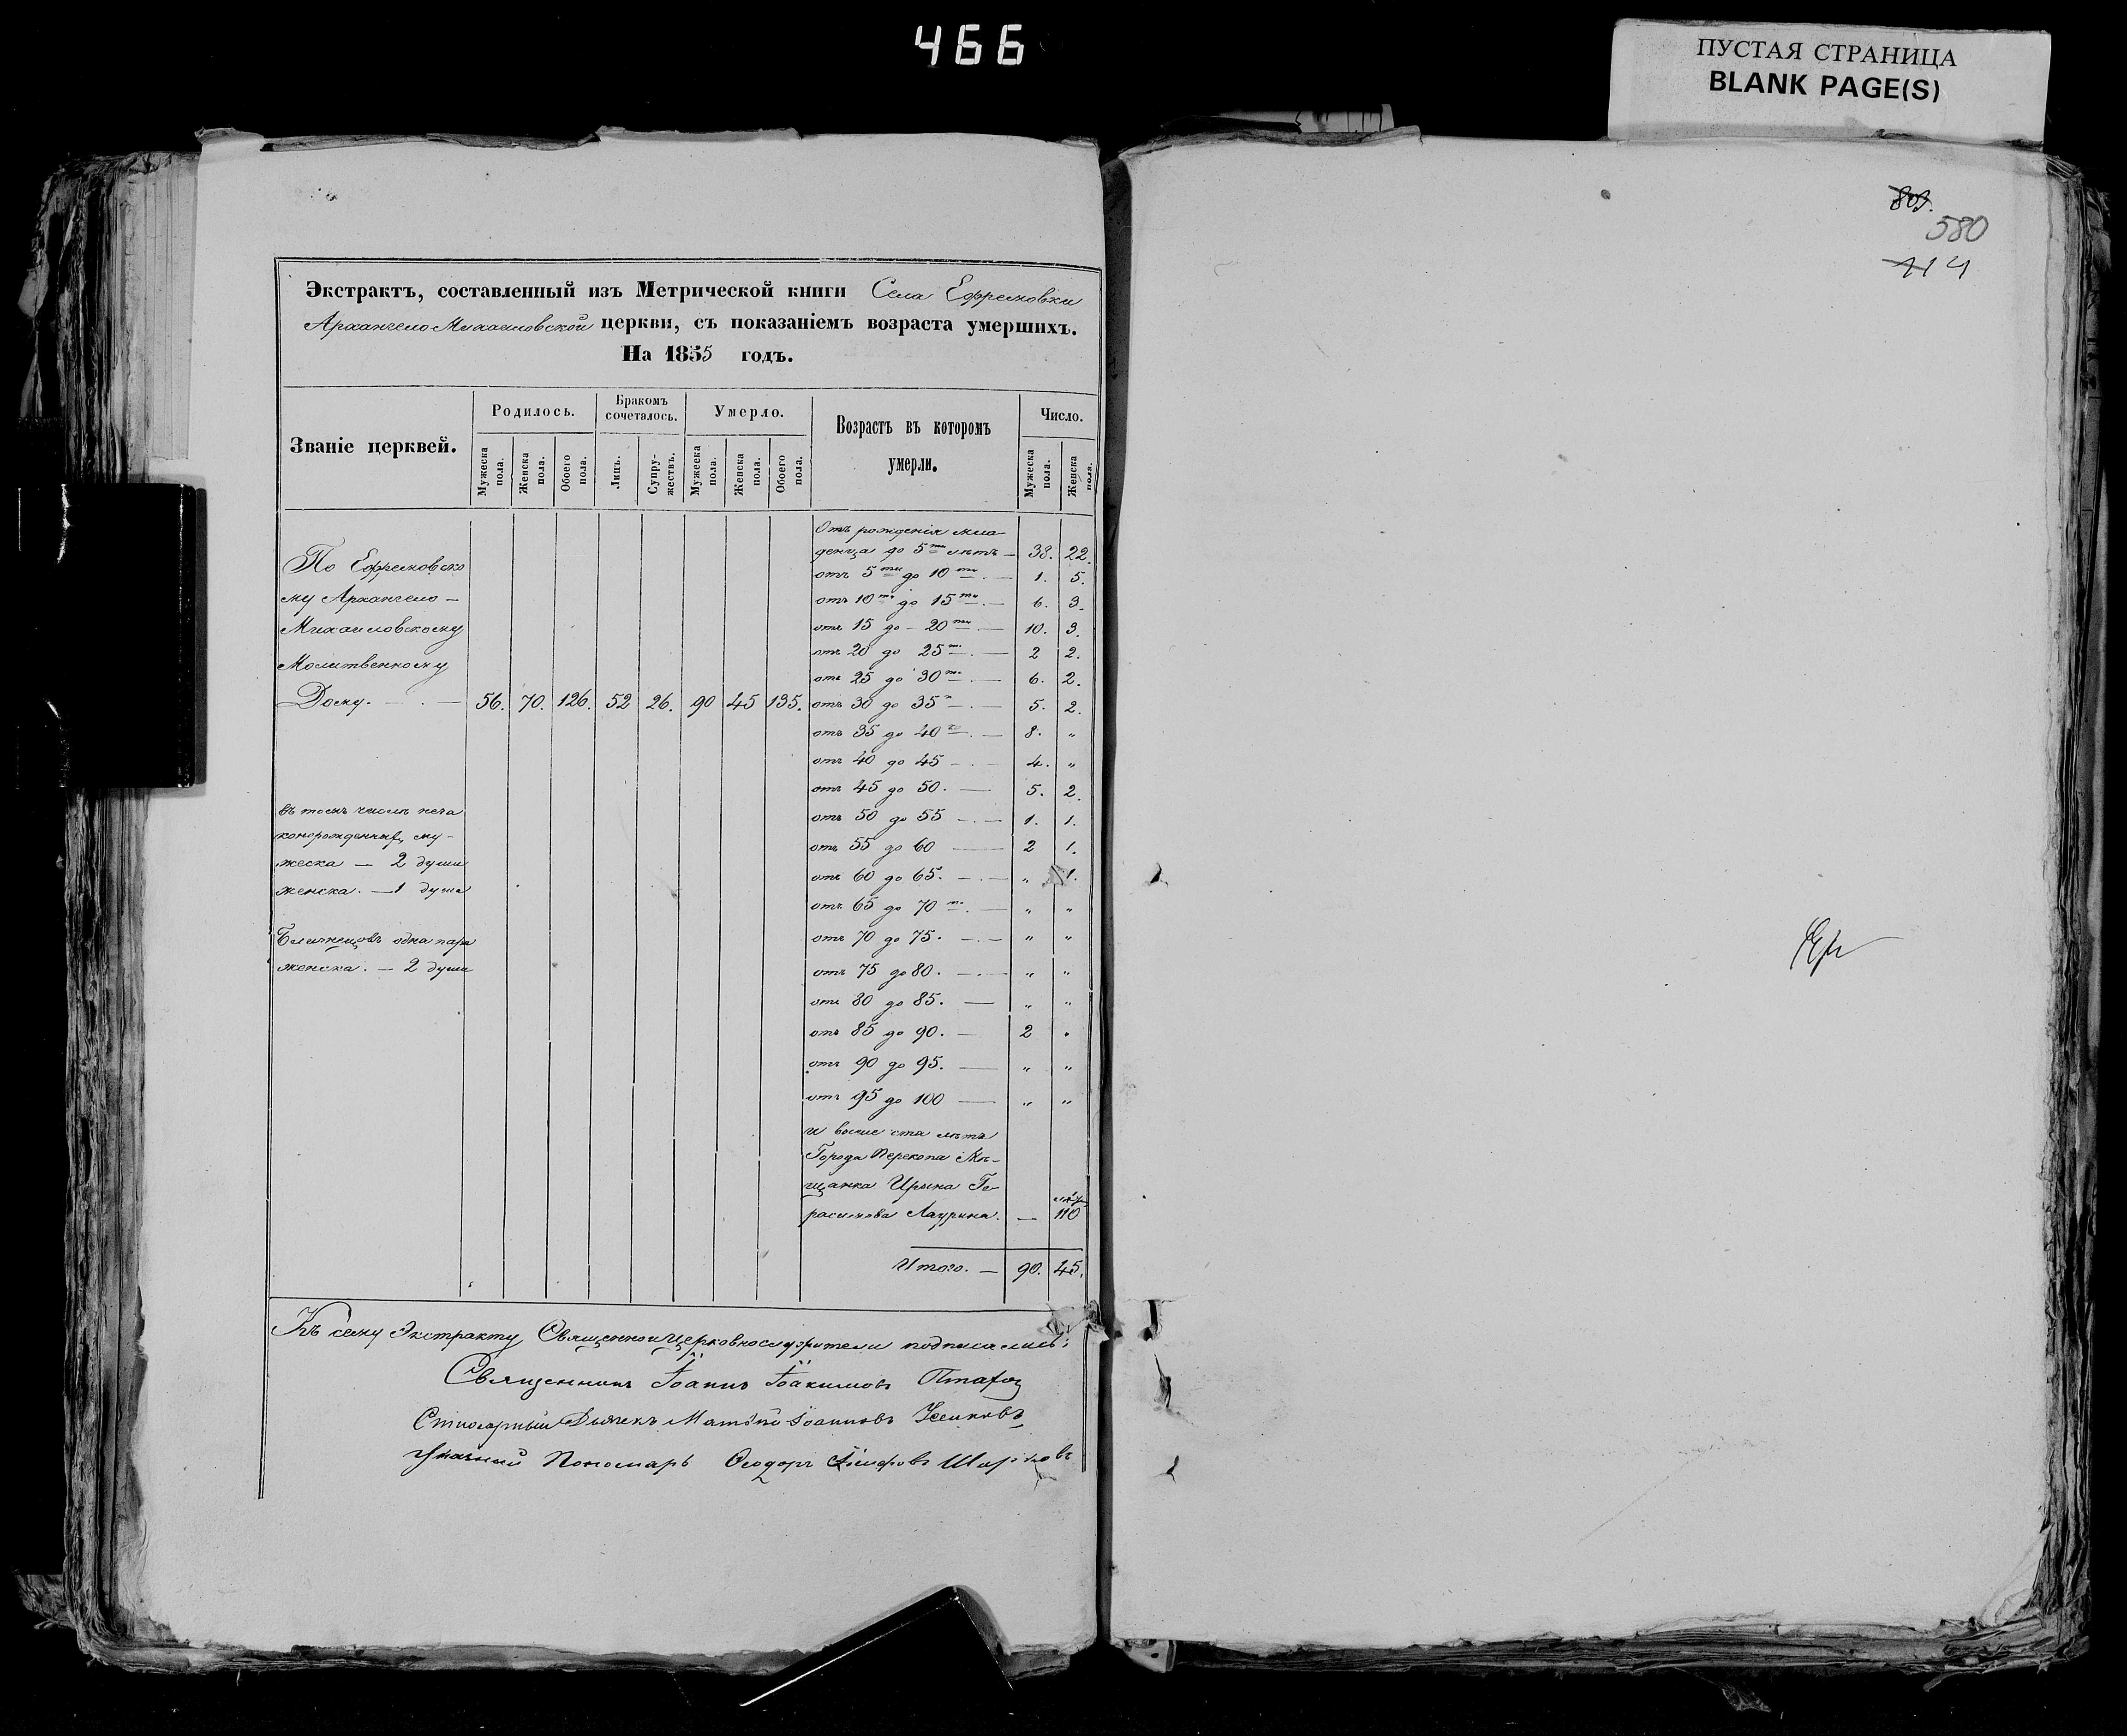 466
ПУСТАЯ СТРАНИЦА
BLANK PAGE(S)
809.
580
114
Экстрактъ, составленный изъ Метрической книги Села Ефремовки
Архангело Михаиловской церкви, съ показаніемъ возраста умершихъ.
На 1855 годъ.
Званіе церквей.
Родилось.
Бракомъ сочеталось.
Умерло.
Возрастъ въ которомъ умерли.
Число.
Мужеска пола. Женска пола. Обоего пола. Лицъ. Супружествъ. Мужеска пола. Женска пола. Обоего пола. Мужеска пола. Женска пола.
По Ефремовско
му Архангело —
Михаиловскому
Молитвенному
Дому. — . — 56. 70. 126. 52 26. 90 45 135.
въ томъ числѣ неза
коннорожденныхъ му-
жеска — 2 души
женска. — 1 душа
Близнецовъ одна пара
женска. — 2 души
Отъ рожденія мла-
денца до 5ти лѣтъ — 38. 22.
отъ 5ти до 10ти — 1. 5.
отъ 10ти до 15ти — 6. 3.
отъ 15 до — 20ти — 10. 3.
отъ 20 до 25ти — 2 2.
отъ 25 до 30ти — 6. 2.
отъ 30 до 35 — 5. 2.
отъ 35 до 40 — 8. „
отъ 40 до 45 — 4. „
отъ 45 до 50. — 5. 2.
отъ 50 до 55 — 1. 1.
отъ 55 до 60 — 2 1.
отъ 60 до 65. — „ 1.
отъ 65 до 70 — „ „
отъ 70 до 75. — „ „
отъ 75 до 80. — „ „
отъ 80 до 85. — „ „
отъ 85 до 90. — 2 „
отъ 90 до 95. — „ „
отъ 95 до 100 — „ „
и выше ста лѣтъ
Города Перекопа Мѣ-
щанка Ирина Ге
расимова Лаурина. — 110
Итого. — 90. 45.
Къ сему Экстракту Священноицерковнослужители подписались:
Священникъ Іоаннъ Іоакимовъ
Дьячекъ Матѳій Іоанновъ
Пономарь Ѳеодоръ